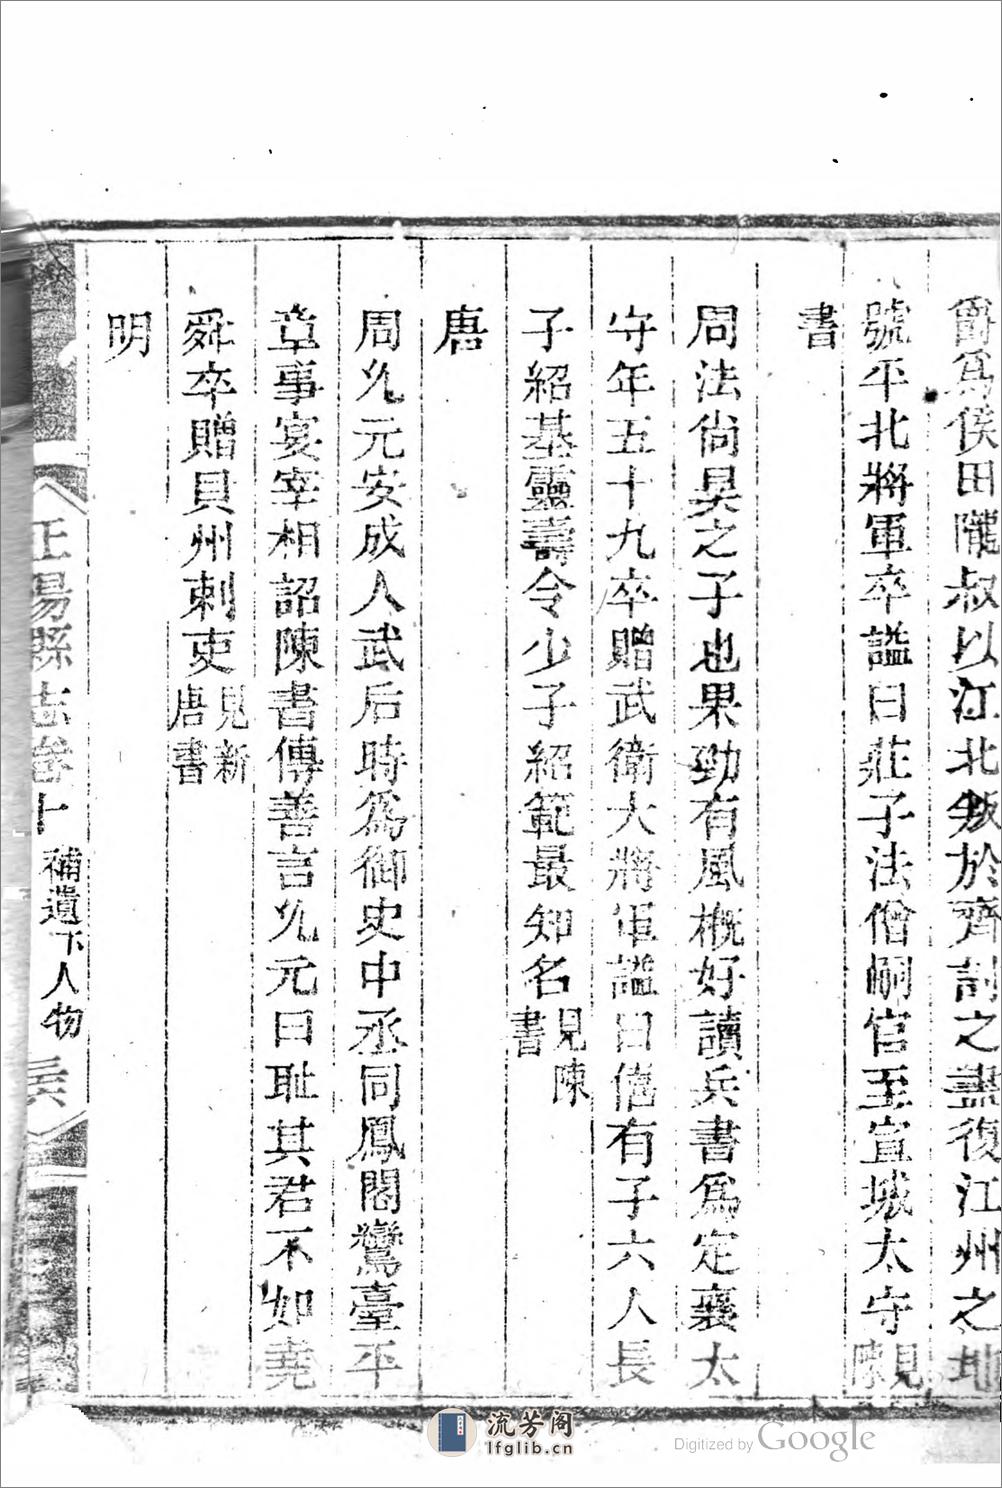 爵爲侯田隴叔以江北叛於齊討之盡復江州之地
號平北將軍卒謚曰莊子法僧嗣官至宣城太守見陳
書
周法尙炅之子也果勁有風槪好讀兵書爲定襄太
守年五十九卒贈武衛大將軍謚曰僖有子六人長
子紹基靈壽令少子紹範最知名見陳書
唐
周允元安成人武后時爲御史中丞同鳳閣鸞臺平
章事宴宰相詔陳書傳善言允元曰耻其君不如堯
舜卒贈貝州刺吏見新唐書
明
正陽縣志卷十 補遺下人物
流芳阁
lfglib.cn
Digitized by Google